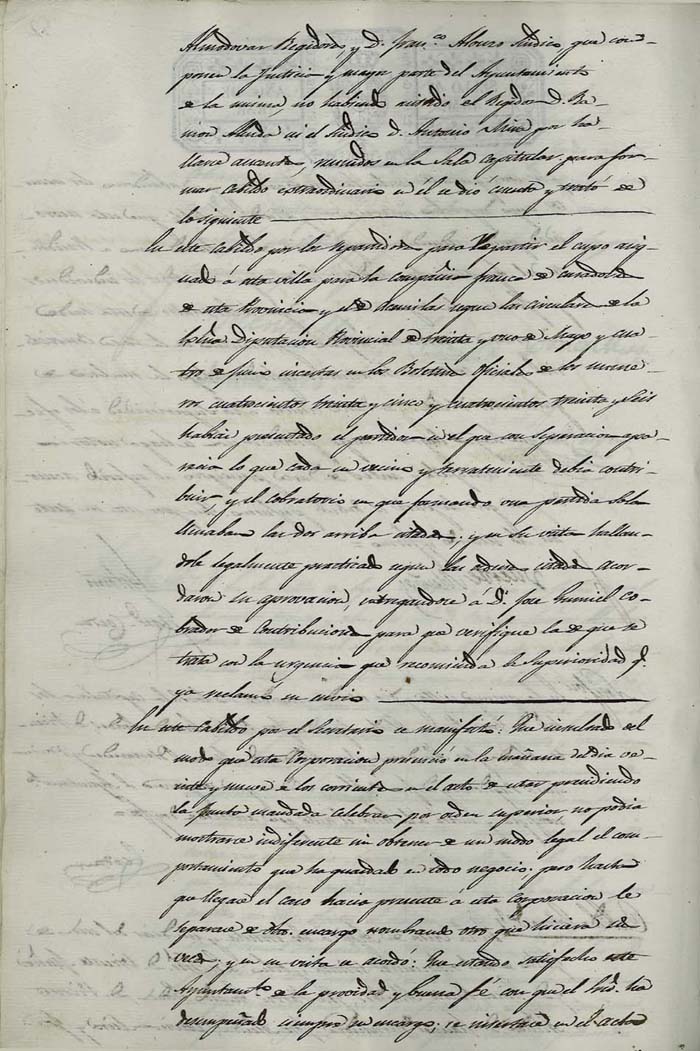 Almodovar Regidores, y D. Fran.co Alonzo Sindico, que com-
ponen la Justicia y mayor parte del Ayuntamiento
de la misma, no habiendo asistido el Regidor D. Ra-
mon ni el Sindico D. Antonio Mira por ha-
llarse ausentes, reunidos en la Sala capitular para for-
mar cabildo extraordinario en él se dió cuenta y trató de
lo siguiente
En este cabildo por los repartidores para repartir el cupo asig-
nado á esta villa para la compañia franca de
de esta Provincia y de demas segun las circulares de la
Diputacion Provincial de treinta y uno de Mayo y cua-
tro de Junio incertas en los Boletines Oficiales de los nume-
ros cuatrocientos treinta y cinco y cuatrocientos treinta y seis
habian presentado el partidor en el que con separacion apa-
recia lo que cada un vecino y terrateniente debia contri-
buir, y el cobratorio en que formando una partida sola
llevaban las dos arriba citadas; y en su vista hallan-
dole legalmente practicado segun las ordenes citadas acor-
daron su aprovacion, entregandose á D. Jose Gumiel Co-
brador de Contribuciones para que verifique la de que se
trata con la urgencia que recomienda la Superioridad q.
ya reclama su envio
En este Cabildo por el Secretario se manifestó: Que resultado del
modo que esta Corporacion presenció en la mañana del dia ve-
inte y nueve de los corrientes en el acto de estar presidiendo
la Junta mandada celebrar por orden superior, no podia
mostrarse indiferente sin obtener de un modo legal el com-
portamiento que ha guardado en todo negocio; pero hasta
que llegare el caso hacia presente á esta Corporacion le
separase de dho. encargo nombrando otro que hiciera sus
veces; y en su vista se acordo: Que estando satisfecho este
Ayuntam.to de la providad y buena fé con que el Srio. ha
desempeñado siempre su encargo, se insertase en el acta